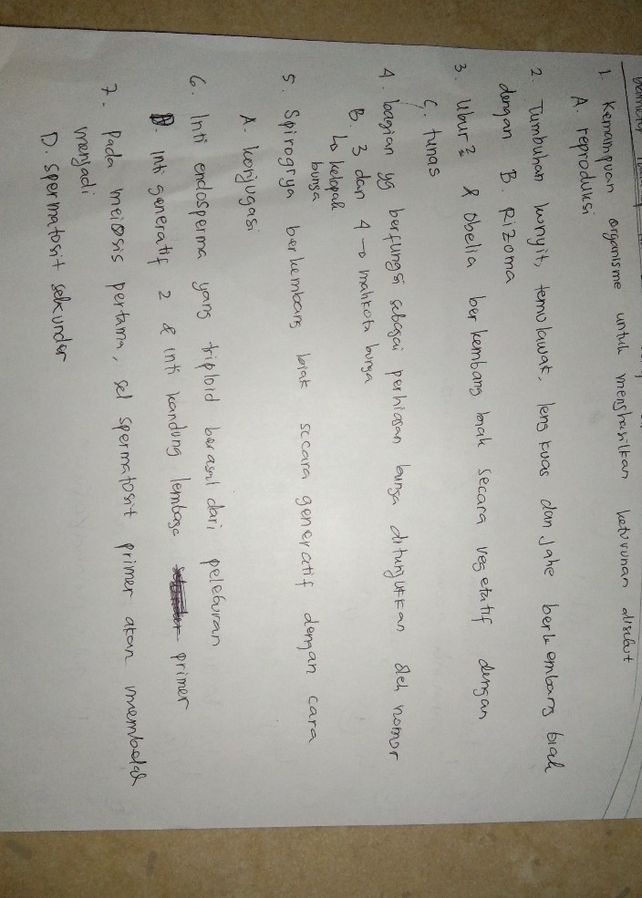 1. Kemampuan organisme untuk menghasilkan keturunan disebut
A. reproduksi
2. Tumbuhan kunyit, temulawak, lengkuas dan jahe berkembang biak
dengan B. Rizoma
3. Ubur² & Obelia berkembang biak secara vegetatif dengan
C. tunas
4. bagian yg berfungsi sebagai perhiasan bunga ditunjukkan oleh nomor
B. 3 dan 4 → mahkota bunga
↳ kelopak
bunga
5. Spirogyra berkembang biak secara generatif dengan cara
A. konjugasi
6. Inti endosperma yang triploid berasal dari peleburan
D. inti generatif 2 & inti kandung lembaga primer
7. Pada meiosis pertama, sel spermatosit primer akan membelah
menjadi
D. spermatosit sekunder